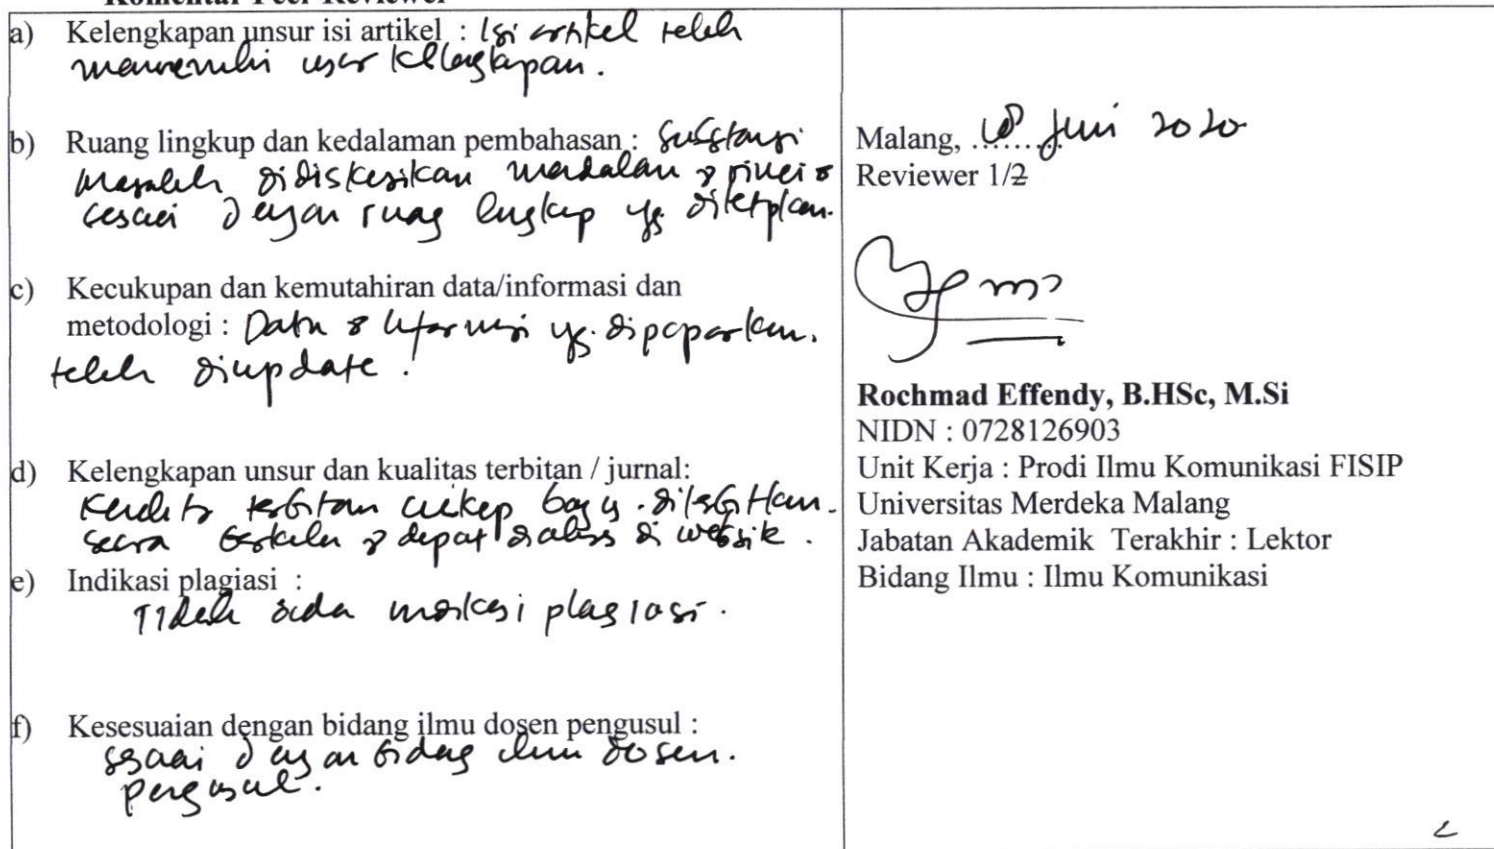 Komentar Peer Reviewer
a) Kelengkapan unsur isi artikel : Isi artikel telah
memenuhi unsur kelengkapan.
b) Ruang lingkup dan kedalaman pembahasan : Substansi
masalah didiskusikan mendalam &
sesuai dengan ruang lingkup yg ditetapkan.
c) Kecukupan dan kemutahiran data/informasi dan
metodologi : Data & informasi yg. dipaparkan.
telah diupdate.
d) Kelengkapan unsur dan kualitas terbitan / jurnal:
terbitan cukup bagus. diterbitkan.
secara berkala & dapat diakses di website.
e) Indikasi plagiasi :
Tidak ada indikasi plagiasi.
f) Kesesuaian dengan bidang ilmu dosen pengusul :
sesuai dengan bidang ilmu dosen.
pengusul.
Malang, ........ Juni 2020
Reviewer 1/2
Rochmad Effendy, B.HSc, M.Si
NIDN : 0728126903
Unit Kerja : Prodi Ilmu Komunikasi FISIP
Universitas Merdeka Malang
Jabatan Akademik Terakhir : Lektor
Bidang Ilmu : Ilmu Komunikasi